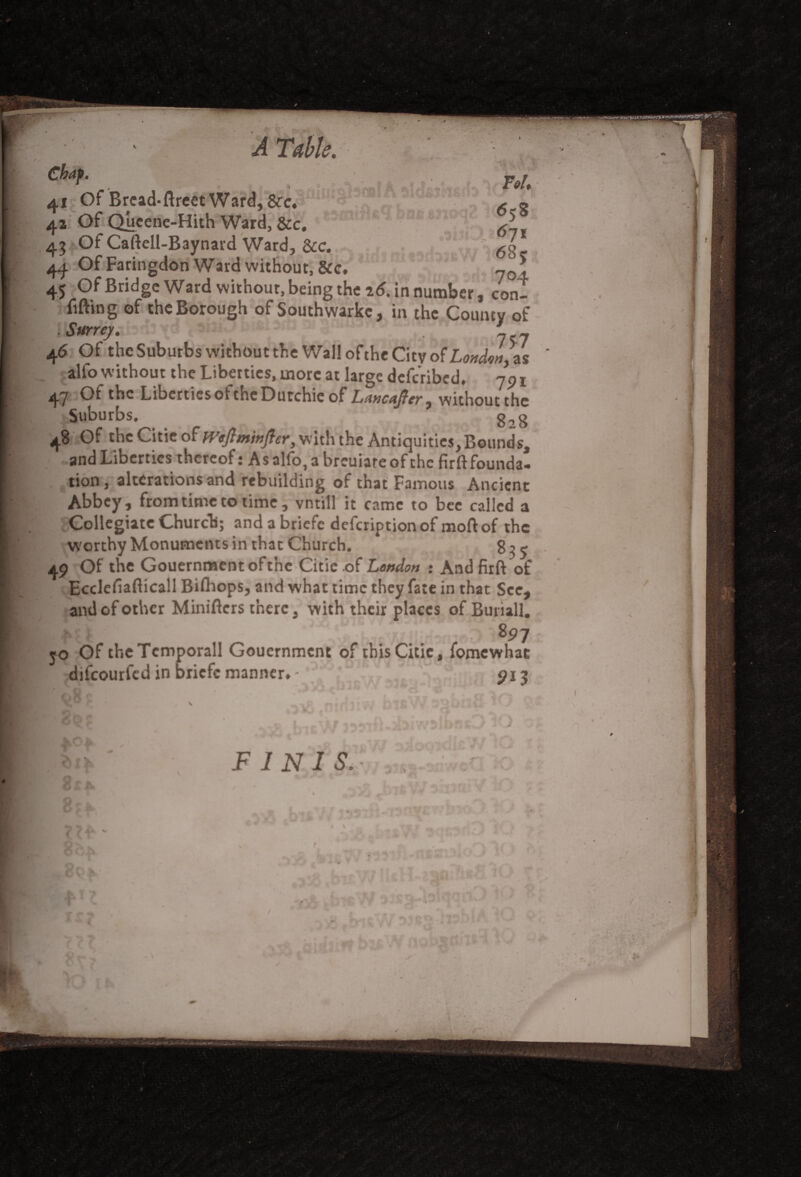 A Table.
Chap. Fol.
41 Of Bread-ſtreet Ward, &c. 658
42 Of Queene-Hith Ward, &c. 671
43 Of Caſtell-Baynard Ward, &c. 685
44 Of Faringdon Ward without, &c. 704
45 Of Bridge Ward without, being the 26. in number, con-
ſiſting of the Borough of Southwarke, in the County of
Surrey. 757
46 Of the Suburbs without the Wall of the City of London, as
alſo without the Liberties, more at large deſcribed. 791
47 Of the Liberties of the Dutchie of Lancaſter, without the
Suburbs. 828
48 Of the Citie of Weſtminſter, with the Antiquities, Bounds,
and Liberties thereof: As alſo, a breuiate of the firſt founda-
tion, alterations and rebuilding of that Famous Ancient
Abbey, from time to time, vntill it came to bee called a
Collegiate Church; and a briefe deſcription of moſt of the
worthy Monuments in that Church. 835
49 Of the Gouernment of the Citie of London : And firſt of
Eccleſiaſticall Biſhops, and what time they ſate in that See,
and of other Miniſters there, with their places of Buriall.
897
50 Of the Temporall Gouernment of this Citie, ſomewhat
diſcourſed in briefe manner. 913
FINIS.